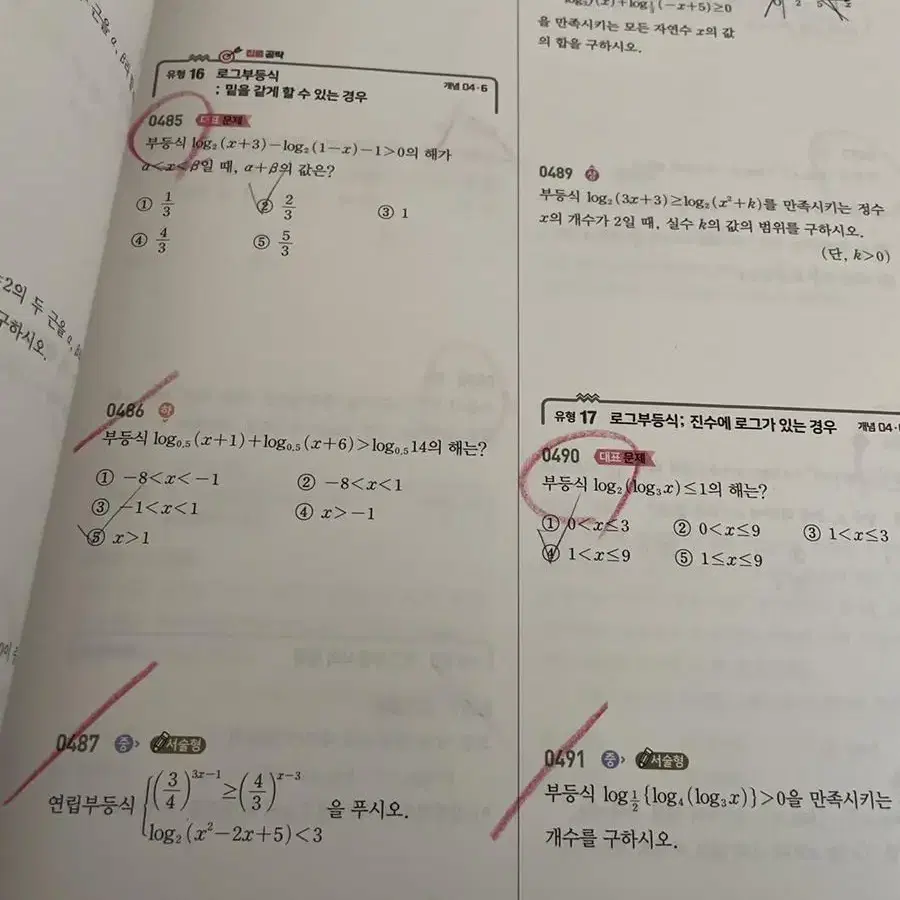 집중 공략
유형 16 로그부등식
: 밑을 같게 할 수 있는 경우
개념 04-6
0485 대표 문제
부등식 log₂(x+3)−log₂(1−x)−1>0의 해가
α<x<β일 때, α+β의 값은?
① 1/3 ② 2/3 ③ 1
④ 4/3 ⑤ 5/3
0486 하
부등식 log₀.₅(x+1)+log₀.₅(x+6)>log₀.₅14의 해는?
① −8<x<−1 ② −8<x<1
③ −1<x<1 ④ x>−1
⑤ x>1
0487 중 서술형
연립부등식 { (3/4)^(3x−1) ≥ (4/3)^(x−3)
log₂(x²−2x+5)<3
을 푸시오.
2의 두 근을 α,
구하시오.
(x)+log½(−x+5)≥0
을 만족시키는 모든 자연수 x의 값
의 합을 구하시오.
0489 상
부등식 log₂(3x+3)≥log₂(x²+k)를 만족시키는 정수
x의 개수가 2일 때, 실수 k의 값의 범위를 구하시오.
(단, k>0)
유형 17 로그부등식; 진수에 로그가 있는 경우
개념 04-
0490 대표 문제
부등식 log₂(log₃x)≤1의 해는?
① 0<x≤3 ② 0<x≤9 ③ 1<x≤3
④ 1<x≤9 ⑤ 1≤x≤9
0491 중 서술형
부등식 log½{log₄(log₃x)}>0을 만족시키는
개수를 구하시오.